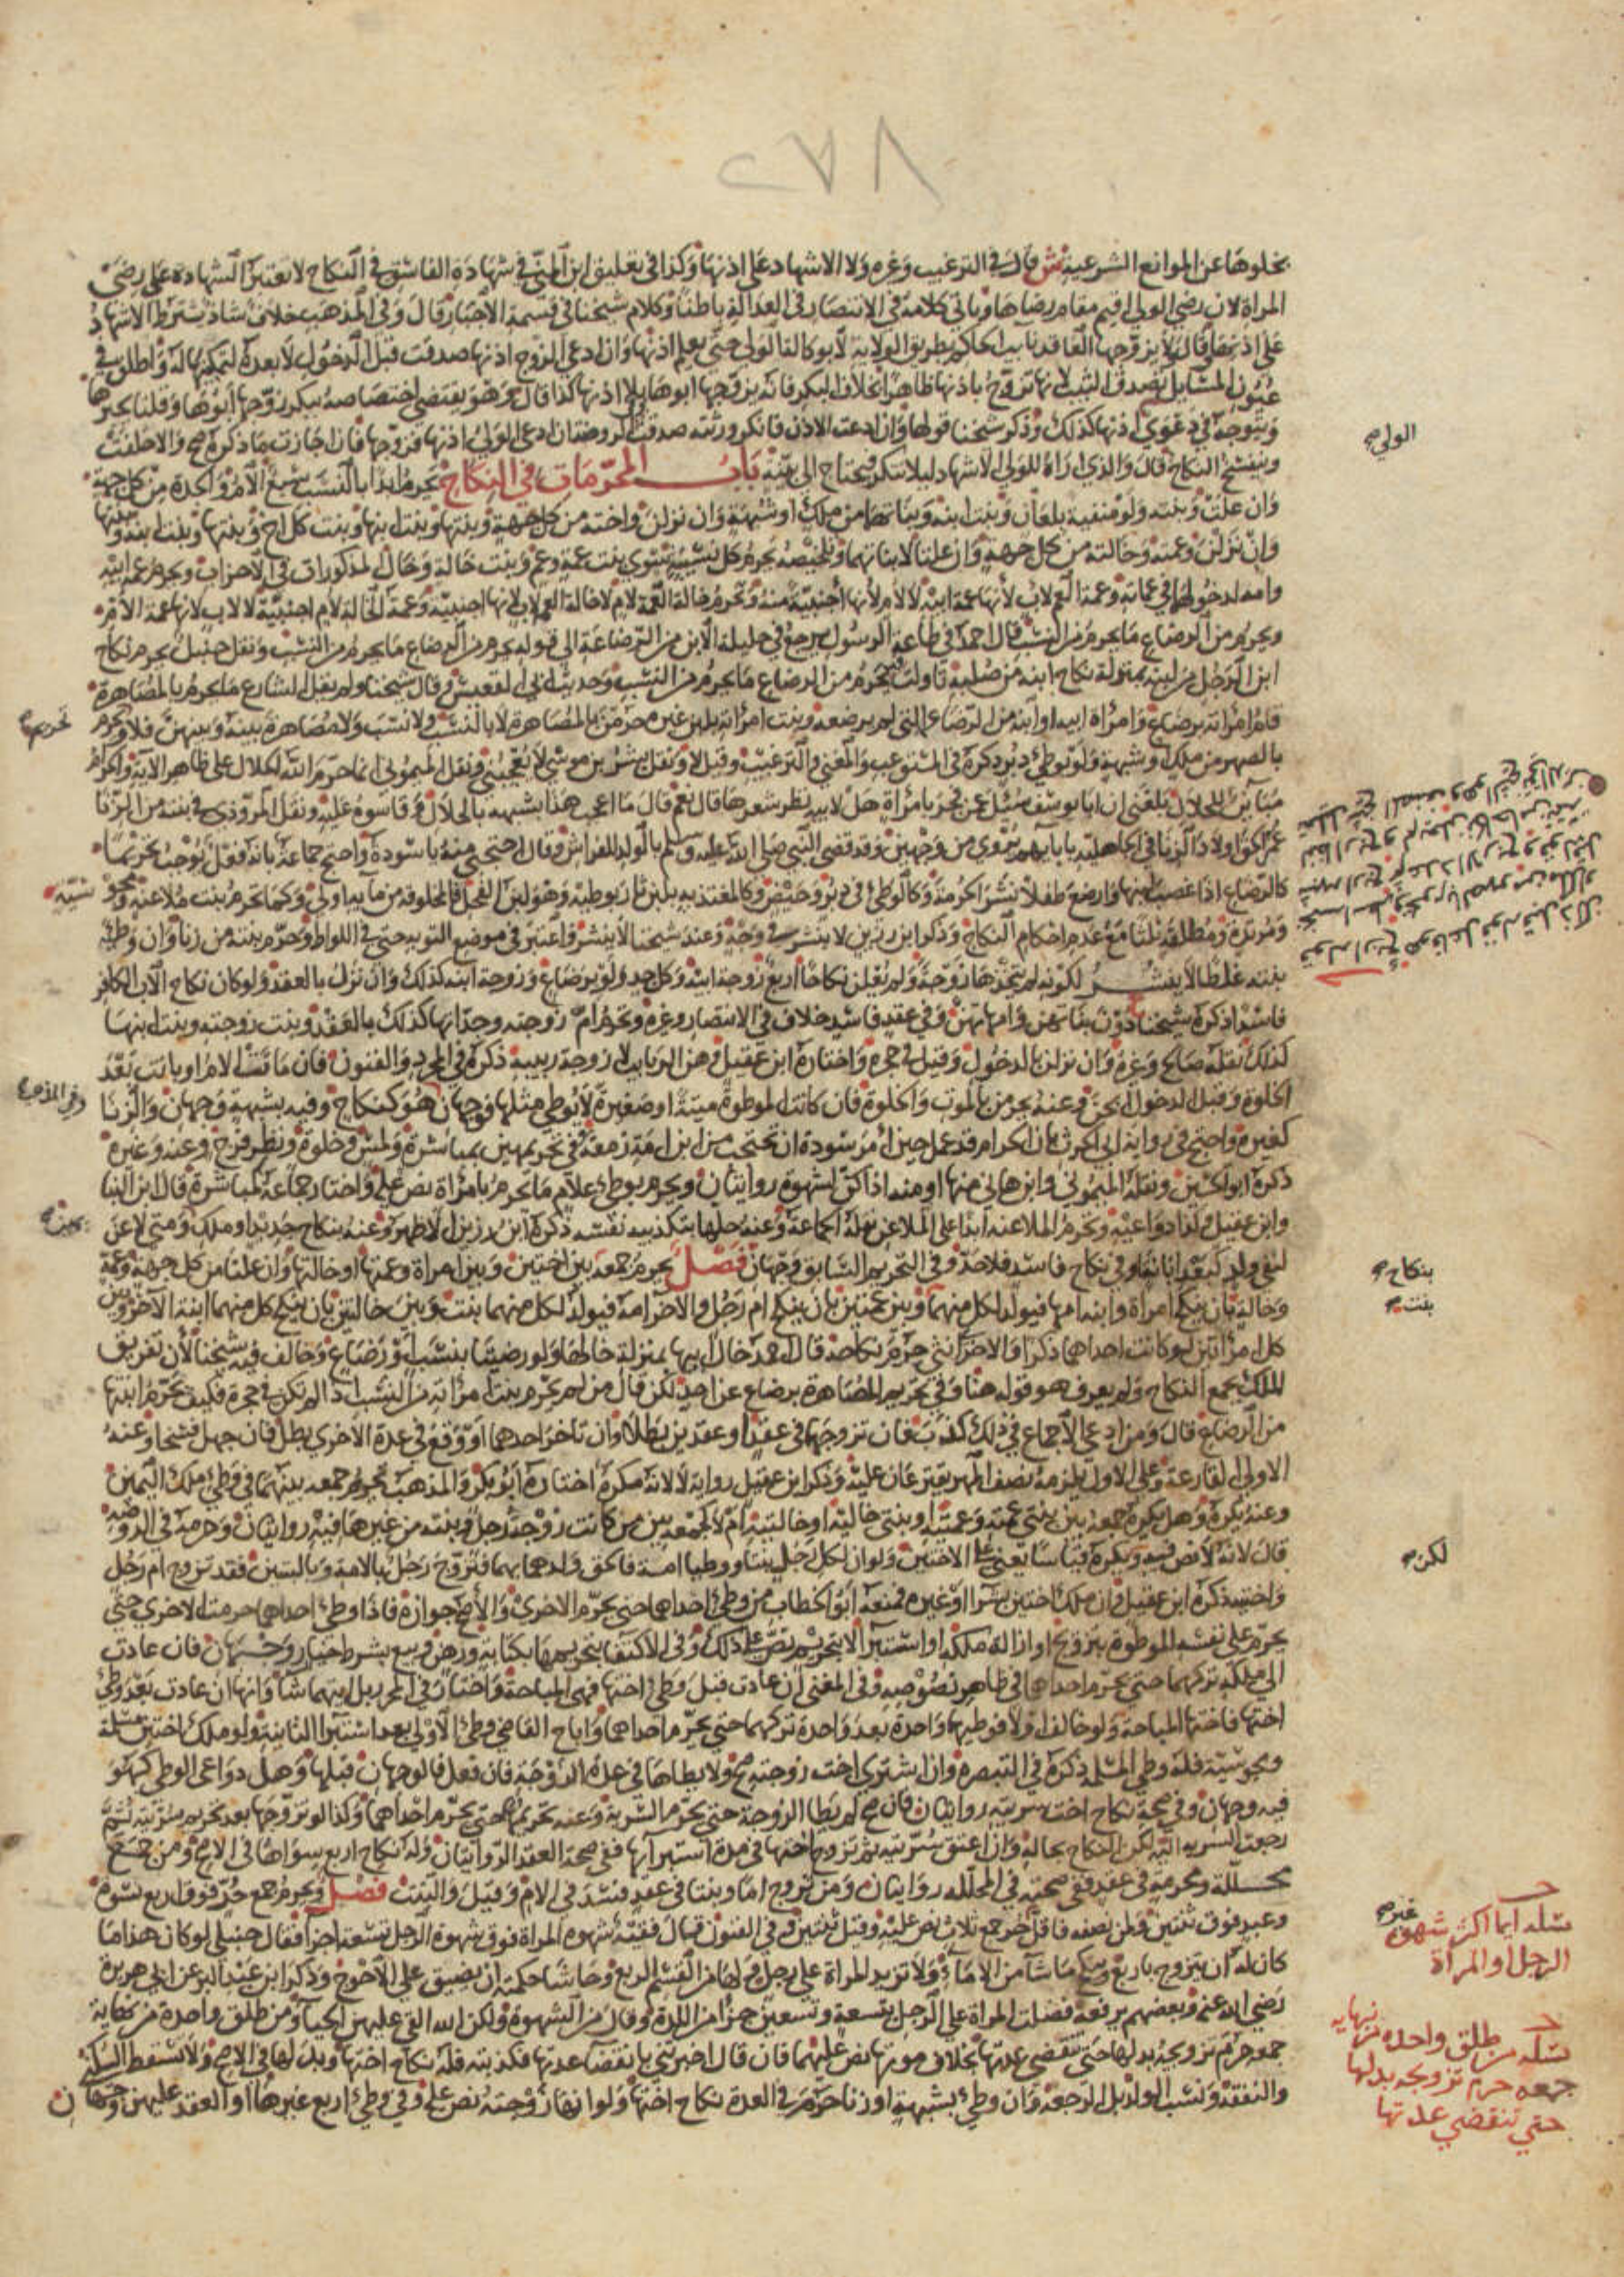 ٢٧٨
بخلوها عن الموانع الشرعية ش قال في الترغيب وغيره ولا الاشهاد على اذنها وكذا في تعليق ابن المني في شهادة الفاسق في النكاح لا تعتبر الشهادة على رضى
المراة لان رضى الولي اقيم مقام رضاها وياتي كلامه في الانتصار في العدالة باطنا وكلام شيخنا في قسمة الاجبار قال وفي المذهب خلاف شاذ يشترط الاشهاد
على اذنها وقال لا يزوجها العاقد نايب الحاكم بطريق الولاية لا بوكالة الولي حتى يعلم اذنها وان ادعى الزوج اذنها صدقت قبل الدخول لا بعده لتمكينها له واطلق في
عيون المسايل تصدق الثيب لانها تزوج باذنها ظاهرا بخلاف البكر فانه يزوجها ابوها بلا اذنها كذا قال وهو يقتضي اختصاصه ببكر زوجها ابوها وقلنا يجبرها
ويتوجه في دعوى اذنها كذلك وذكر شيخنا قولها وان ادعت الاذن فانكر ورثته صدقت الروضة ان ادعى الولي اذنها فزوجها فان اجازت ما ذكره صح والا حلفت
الولي صح
وينفسخ النكاح قال والذي اراه للولي الاشهاد ليلا تنكر فيحتاج الى بينة باب المحرمات في النكاح تحرم ابدا بالنسب سبع الام والجدة من كل جهة
وان علت وبنته ولو منفية بلعان وبنت ابنه وبناتهما من ملك او شبهة وان نزلن واخته من كل جهة وبنتها وبنت ابنها وبنت كل اخ وبنتها وبنت ابنه وبنتها
وان نزلن وعمته وخالته من كل جهة وان علتا لا بناتهما وتلخيصه يحرم كل نسيبة سوى بنت عمة وعم وبنت خالة وخال المذكورات في الاحزاب وتحرم عمة ابيه
وامه لدخولها في عماته وعمة العم لاب لانها عمة ابيه لا لام لانها اجنبية منه وتحرم خالة العمة لام لا خالة العمة لاب لانها اجنبية وعمة الخالة لام اجنبية لا لاب لانها عمة الام
ويحرم من الرضاع ما يحرم من النسب قال احمد في طاعة الرسول يرجع في حليلة الابن من الرضاعة الى قوله يحرم من الرضاع ما يحرم من النسب ونقل حنبل يحرم نكاح
ابن الرجل من لبنه بمنزلة نكاح ابنه من صلبه تاولت يحرم من الرضاع ما يحرم من النسب وحديث ابي القعيس وقال شيخنا ولم يقل الشارع ما يحرم بالمصاهرة
فام امراته برضاع وامراة ابيه او ابنه من الرضاع التي لم يرضعه وبنت امراته بلبن غيره محرمن بالمصاهرة لا بالنسب ولا نسب ولا مصاهرة بينه وبينهن فلا يحرم
تحريم صح
بالصهر من ملك او شبهة ولو بوطئ دبر ذكره في المستوعب والمغني والترغيب وقيل لا ونقل بشر بن موسى لا يعجبني ونقل الميموني انما حرم الله الحلال على ظاهر الآية والحرام
مباين للحلال بلغني ان ابا يوسف سئل عن فجر بامراة هل لابيه نظر شعرها قال نعم قال ما اعجب هذا يشبهه بالحلال وقاسوه عليه ونقل المروذي في بنته من الزنا
عمر الحق اولاد الزنا في الجاهلية بابايهم يروى من وجهين وقد قضى النبي صلى الله عليه وسلم بالولد للفراش وقال احتجبي منه يا سودة واحتج جماعة بانه فعل يوجب تحريما
كالرضاع اذا غصب لبنها وارضع طفلا نشر الحرمة وكالوطئ في دبر وحيض وكالمغتذية بلبن ثار بوطيه وهو لبن الفحل فالمخلوقة من مايه اولى وكما تحرم بنت ملاعنة ومجو
سية
ومرتدة ومطلقة ثلثا مع عدم احكام النكاح وذكر ابن رزين لا ينشر في وجه وعند شيخنا لا ينشر واعتبر في موضع التوبة حتى في اللواط وحرم بنته من زنا وان وطئ
بنته غلطا لا ينشر لكونه لم يتخذها زوجة ولم يعلن نكاحا اربع زوجة ابيه وكل جد ولو برضاع وزوجة ابنه كذلك وان نزل بالعقد ولو كان نكاح الاب الكافر
فاسدا ذكره شيخنا دون بناتهن وامهاتهن وفي عقد فاسد خلاف في الانتصار وغيره وتحرم ام زوجته وجداتها كذلك بالعقد وبنت زوجته وبنت ابنها
كذلك نقله صالح وغيره وان نزلن بالدخول وقيل في حجره واختاره ابن عقيل وهن الربايب لا زوجة ربيبه ذكره في المجرد والفنون فان ماتت الام او بانت بعد
الخلوة وقبل الدخول ابحن وعنه يحرمن بالموت والخلوة فان كانت الموطوة ميتة او صغيرة لا يوطئ مثلها فوجهان هو كنكاح وفيه بشبهة وجهان والزنا
وفي المذهب
كغيره واحتج في رواية ابي الحرث بان الحرام قد عمل حين امر سودة ان تحتجب من ابن امة زمعة وفي تحريمهن بمباشرة ولمس وخلوة ونظر فرج وعنه وغيره
ذكره ابو الحسين ونقله الميموني وابن هاني منها او منه اذا كن لشهوة روايتان ويحرم بوطئ غلام ما يحرم بامراة نص عليه واختار جماعة لمباشرة قال ابن البنا
وابن عقيل وكذا دواعيه وتحرم الملاعنة ابدا على الملاعن نقله الجماعة وعنه حلها بتكذيبه نفسه ذكره ابن رزين الاظهر وعنه بنكاح جديد او ملك ومتى لاعن
لنفي ولد كبعد ابانة او في نكاح فاسد فلا حد وفي التحريم السابق وجهان فصل يحرم جمعه بين اختين وبين امراة وعمتها او خالتها وان علتا من كل جهة وعمة
بنكاح صح
وخالة بان ينكح امراة وابنه امها فيولد لكل منهما وبين عمتين بان ينكح ام رجل والاخر امه فيولد لكل منهما بنت وبين خالتين بان ينكح كل منهما ابنة الاخر وبين
بنت صح
كل امراتين لو كانت احداهما ذكرا والاخرى انثى حرم نكاحه قال احمد خال ابيها بمنزلة خالها ولو رضيتا بنسب او رضاع وخالف فيه شيخنا لان تفريق
الملك يجمع النكاح ولم يعرف هو قوله هنا وفي تحريم المصاهرة برضاع عن احد لكن قال من لم يحرم بنت امراته من النسب اذا لم تكن في حجره فكيف يحرم ابنتها
من الرضاع قال ومن ادعى الاجماع في ذلك كذب فان تزوجهما في عقد او عقدين بطلا وان تاخر احدهما او وقع في عدة الاخرى بطل فان جهل فسخا وعنه
الاولى القارعة وعلى الاول يلزمه نصف المهر يقترعان عليه وذكر ابن عقيل رواية لا لانه مكره اختاره ابو بكر والمذهب تحريم جمعه بينهما في وطئ ملك اليمين
وعنه يكره وهل يكره جمعه بين بنتي عمته وعميه او بنتي خاليه او خالتيه ام لا كجمعه بين من كانت زوجة رجل وبنته من غيرها فيه روايتان وحرمه في الروضة
قال لانه لا نص فيه ويكره قياسا يعني على الاختين ولو ان لكل رجل بنتا ووطيا امة فالحق ولدهما بهما فتزوج رجل بالامة وبالبنتين فقد تزوج ام رجل
لكن صح
واختيه ذكره ابن عقيل وان ملك اختين بشرا او غيره فمنعه ابو الخطاب من وطئ احداهما حتى يحرم الاخرى والاصح جوازه فاذا وطئ احداهما حرمت الاخرى حتى
يحرم على نفسه الموطوة بتزويج او ازالة ملكه او استبرا لا بتحريم نص على ذلك وفي الاكتفا بتحريمها بكتابة ورهن وبيع بشرط خيار وجهان فان عادت
الى ملكه تركهما حتى يحرم احداهما في ظاهر نصوصه وفي المغني ان عادت قبل وطئ اختها فهي المباحة واختار في المحرر بل ايتهما شا وانها ان عادت بعد وطئ
اختها فاختها المباحة ولو خالف اولا فوطيهما واحدة بعد واحدة تركهما حتى يحرم احداهما واباح القاضي وطئ الاولى بعد استبرا الثانية ولو ملك اختين مسلمة
ومجوسية فله وطئ المسلمة ذكره في التبصرة وان اشترى اخت زوجته صح ولا يطاها في عدة الزوجة فان فعل فالوجهان قبلها وهل دواعي الوطئ كهو
فيه وجهان وفي صحة نكاح اخت سريته روايتان فان صح لم يطا الزوجة حتى يحرم السرية وعنه تحريمهما حتى يحرم احداهما وكذا لو تزوجها بعد تحريم سريته ثم
رجعت السرية اليه لكن النكاح بحاله وان اعتق سريته ثم تزوج اختها في مدة استبرايها ففي صحة العقد الروايتان وله نكاح اربع سواها في الاصح ومن جمع
محللة ومحرمة في عقد ففي صحته في المحللة روايتان ومن تزوج اما وبنتا في عقد فسد في الام وقيل والبنت فصل ويحرم جمع حر فوق اربع نسوة
وعبد فوق ثنتين ولمن نصفه فاقل حر جمع ثلاث نص عليه وقيل ثنتين وفي الفنون قال فقيه شهوة المراة فوق شهوة الرجل تسعة اجزا فقال حنبلي لو كان هذا ما
مسئلة ايما اكثر شهوة
الرجل او المراة
كان له ان يتزوج باربع وينكح ما شا من الاماء ولا تزيد المراة على رجل ولها من القسم الربع وحاشا حكمته ان يضيق على الاحوج وذكر ابن عبد البر عن ابي هريرة
رضي الله عنه وبعضهم يرفعه فضلت المراة على الرجل بتسعة وتسعين جزءا من اللذة او قال من الشهوة ولكن الله القى عليهن الحيا ومن طلق واحدة من نهاية
جمعه حرم تزويجه بدلها حتى تنقضي عدتها بخلاف موتها نص عليهما فان قال اخبرتني بانقضا عدتها فكذبته فله نكاح اختها وبدلها في الاصح ولا تسقط السكنى
مسئلة من طلق واحدة من نهاية
جمعه حرم تزويجه بدلها
حتى تنقضي عدتها
والنفقة ونسب الولد بل الرجعة وان وطئ بشبهة او زنا حرم في العدة نكاح اختها ولو انها زوجته نص عليه وفي وطئ اربع غيرها او العقد عليهن وجهان